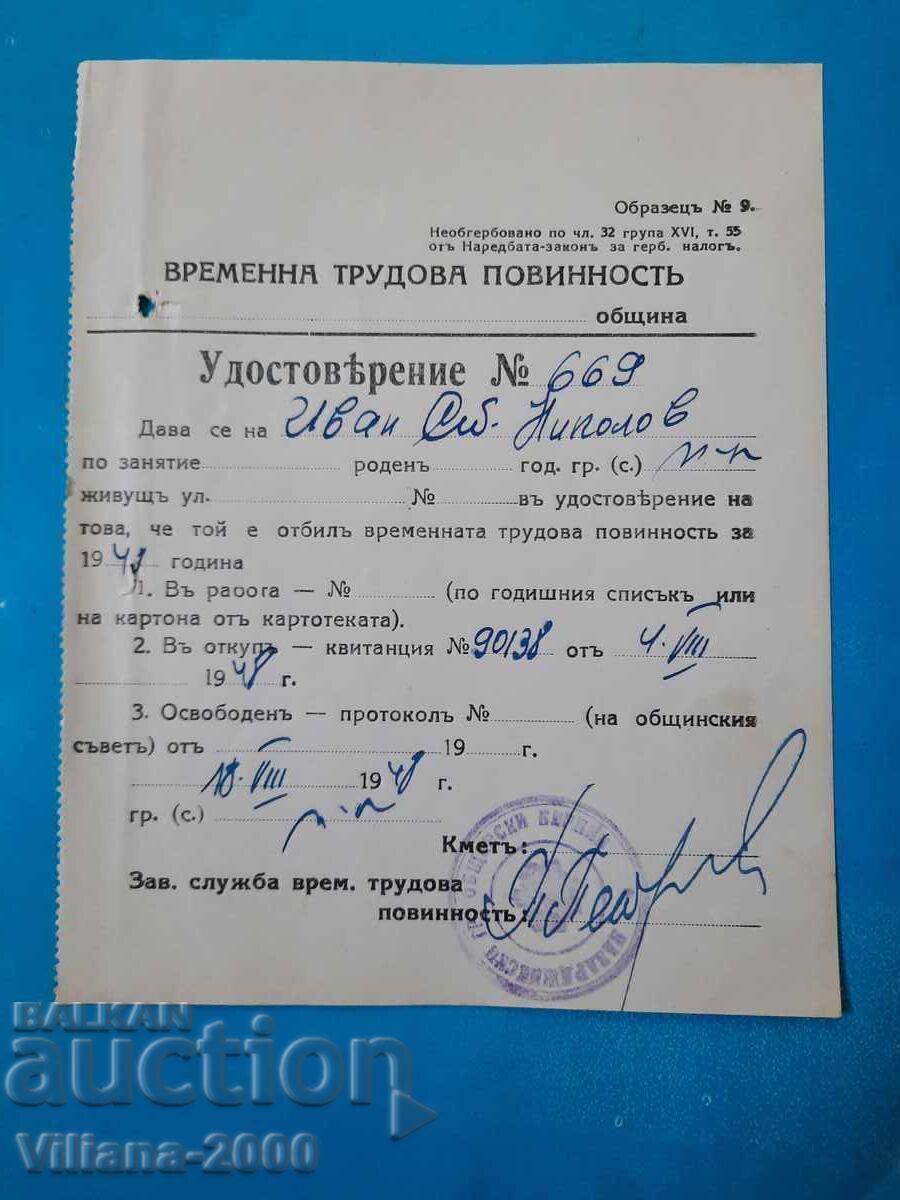 Образецъ № 9.
Необгербовано по чл. 32 група XVI, т. 55
отъ Наредбата-законъ за герб. налогъ.
ВРЕМЕННА ТРУДОВА ПОВИННОСТЬ
община
Удостовѣрение № 669
Дава се на Иван Николов
по занятие роденъ год. гр. (с.) п-к
живущъ ул. № въ удостовѣрение на
това, че той е отбилъ временната трудова повинность за
1948 година
1. Въ работа — № (по годишния списъкъ или
на картона отъ картотеката).
2. Въ откупъ — квитанция № 90138 отъ 4. VIII
1948 г.
3. Освободенъ — протоколъ № (на общинския
съветъ) отъ 19 г.
18. VIII 1948 г.
гр. (с.) п-к
Кметъ:
Зав. служба врем. трудова
повинность:
BALKAN
auction
Viliana-2000